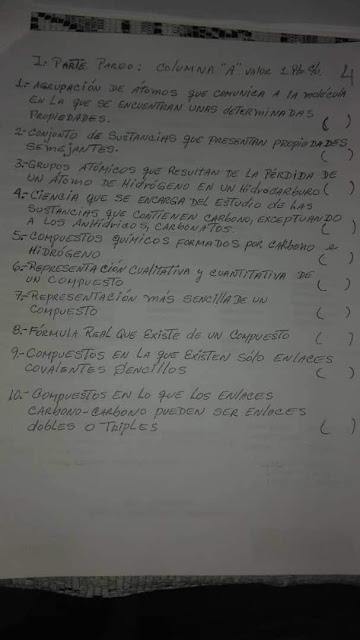 I- PARTE PAREO: COLUMNA "A" VALOR 1 Pto %. 4
1.- AGRUPACIÓN DE ÁTOMOS QUE COMUNICA A LA MOLÉCULA
EN LA QUE SE ENCUENTRAN UNAS DETERMINADAS
PROPIEDADES. ( )
2.- CONJUNTO DE SUSTANCIAS QUE PRESENTAN PROPIEDADES
SEMEJANTES. ( )
3.- GRUPOS ATÓMICOS QUE RESULTAN DE LA PÉRDIDA DE
UN ÁTOMO DE HIDRÓGENO EN UN HIDROCARBURO ( )
4.- CIENCIA QUE SE ENCARGA DEL ESTUDIO DE LAS
SUSTANCIAS QUE CONTIENEN CARBONO, EXCEPTUANDO
A LOS ANHIDRIDOS, CARBONATOS. ( )
5.- COMPUESTOS QUÍMICOS FORMADOS POR CARBONO e
HIDRÓGENO ( )
6.- REPRESENTACIÓN CUALITATIVA y CUANTITATIVA DE
UN COMPUESTO ( )
7.- REPRESENTACIÓN MÁS SENCILLA DE UN
COMPUESTO ( )
8.- FÓRMULA REAL QUE EXISTE DE UN COMPUESTO ( )
9.- COMPUESTOS EN LA QUE EXISTEN SÓLO ENLACES
COVALENTES SENCILLOS ( )
10.- COMPUESTOS EN LO QUE LOS ENLACES
CARBONO-CARBONO PUEDEN SER ENLACES
dobles O TRIPLES ( )